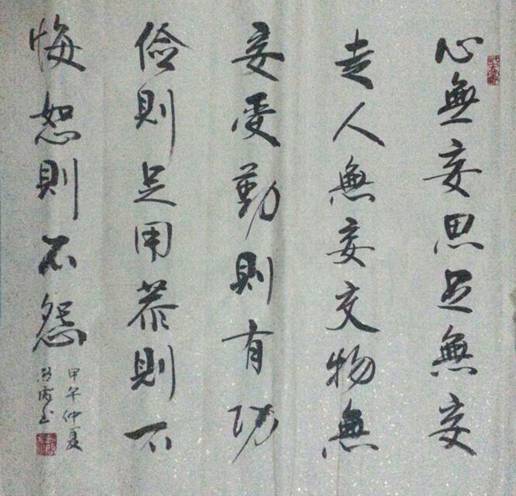 心無妄思足無妄
走人無妄交物無
妄受勤則有功
儉則足用恭則不
悔恕則不怨
甲午仲夏